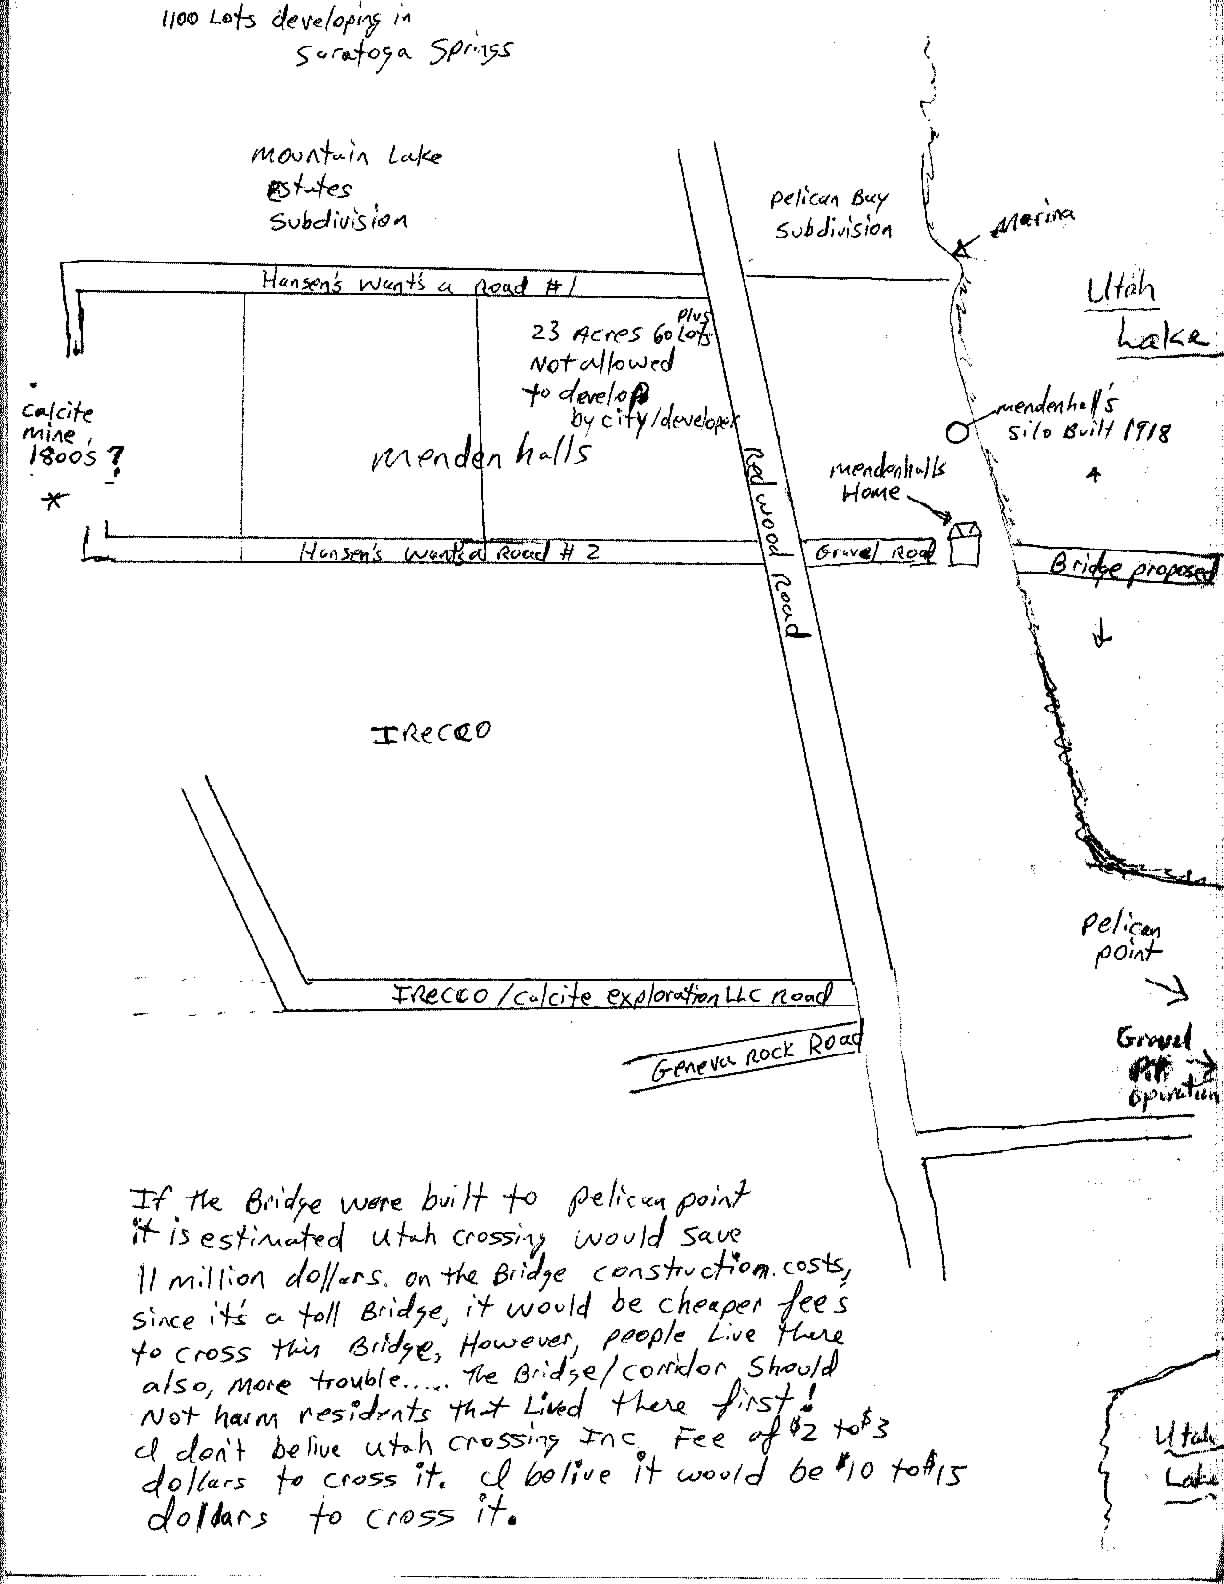 1100 Lots developing in
Saratoga Springs
Mountain Lake
Estates
Subdivision
Pelican Bay
Subdivision
Marina
Hansen's Want's a Road #1
Utah
Lake
plus
23 Acres 60 Lots
Not allowed
to develop
by city/developer
Calcite
mine,
1800's ?
Mendenhalls
mendenhall's
Silo Built 1918
mendenhalls
Home
Redwood Road
Hansen's Want's a Road #2
Gravel Road
Bridge proposed
IRECCO
Pelican
point
IRECCO/Calcite exploration LLC Road
Geneva Rock Road
Gravel
Pit
operation
If the Bridge were built to pelican point
it is estimated Utah crossing would save
11 million dollars. on the Bridge construction costs,
since it's a toll Bridge, it would be cheaper fees
to cross this Bridge, However, people Live there
also, more trouble..... The Bridge/corridor Should
Not harm residents that Lived there first!
I don't belive Utah crossing Inc Fee of $2 to $3
dollars to cross it. I belive it would be $10 to $15
dollars to cross it.
Utah
Lake